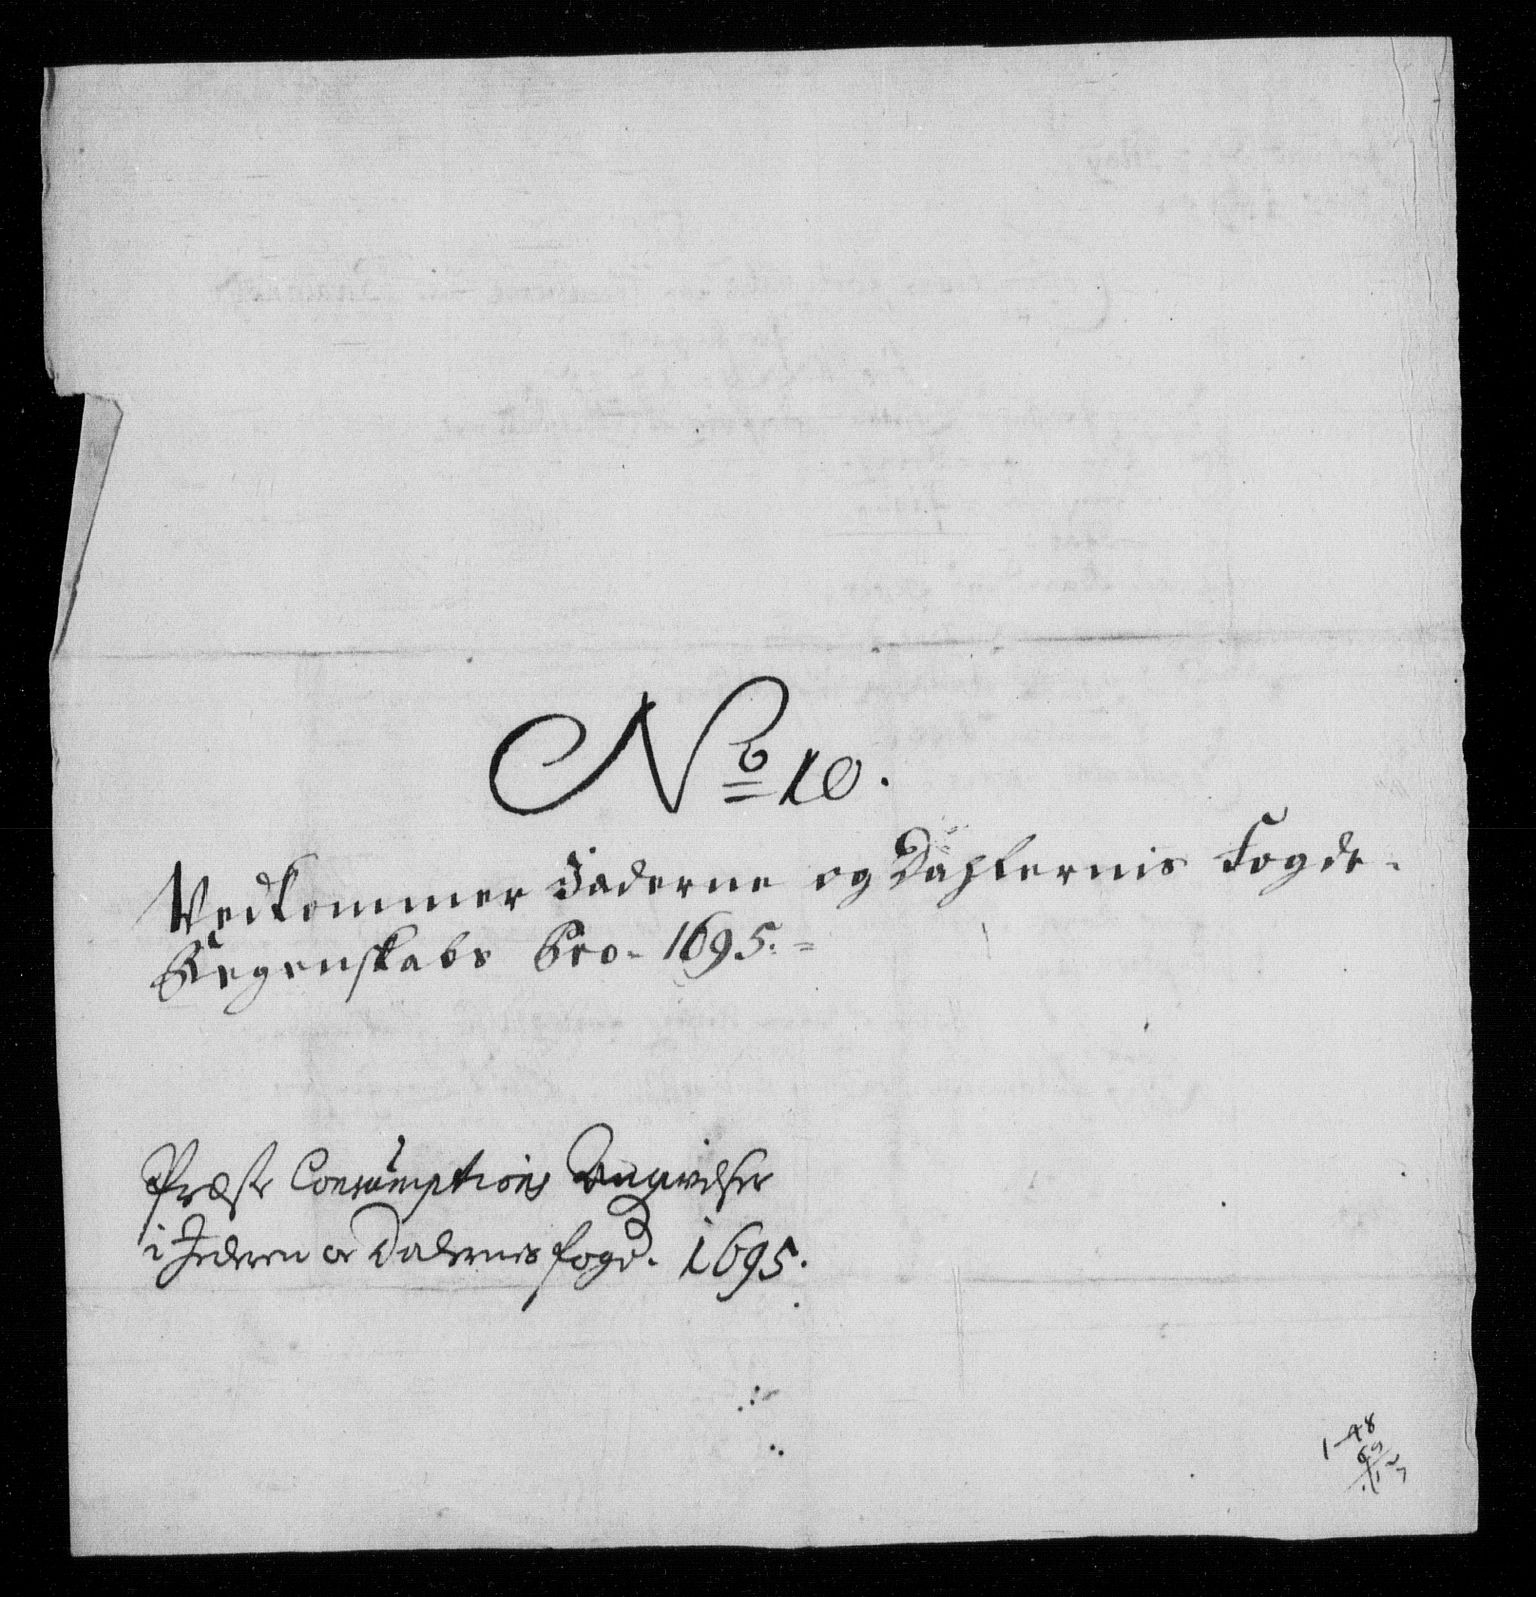 No 10.
Vedkommer Jäderne og Dahlernis Fogde-
Regenskabs Pro. 1695.=
Præste Consumptions Angivelser
i Jederen oc Dalernis fogd. 1695.
1-48